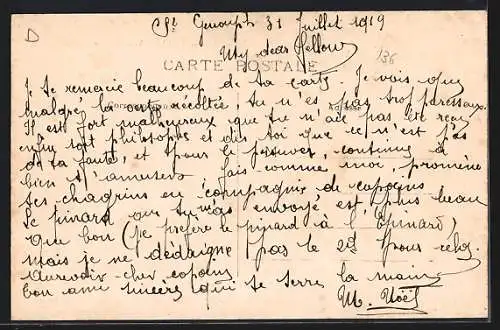 D
St Genouph 31 Juillet 1919
My dear fellow
136
CARTE POSTALE
Je te remercie beaucoup de ta carte. Je vois que
malgré la carte récoltée, tu n'es pas trop paresseux.
Correspondance Adresse
Il est fort malheureux que tu n'aies pas été reçu
enfin sois philosophe et dis toi que ce n'est pas
de ta faute, et pour le prouver continue à
bien t'amuser. Fais comme moi, promène
tes chagrins en compagnie de copains
Le pinard que tu m'as envoyé est plus beau
que bon (je préfère le pinard à l'Epinard)
mais je ne dédaigne pas le 2d pour cela.
Aurevoir cher copain
bon ami sincère qui te serre la main
M. Noël